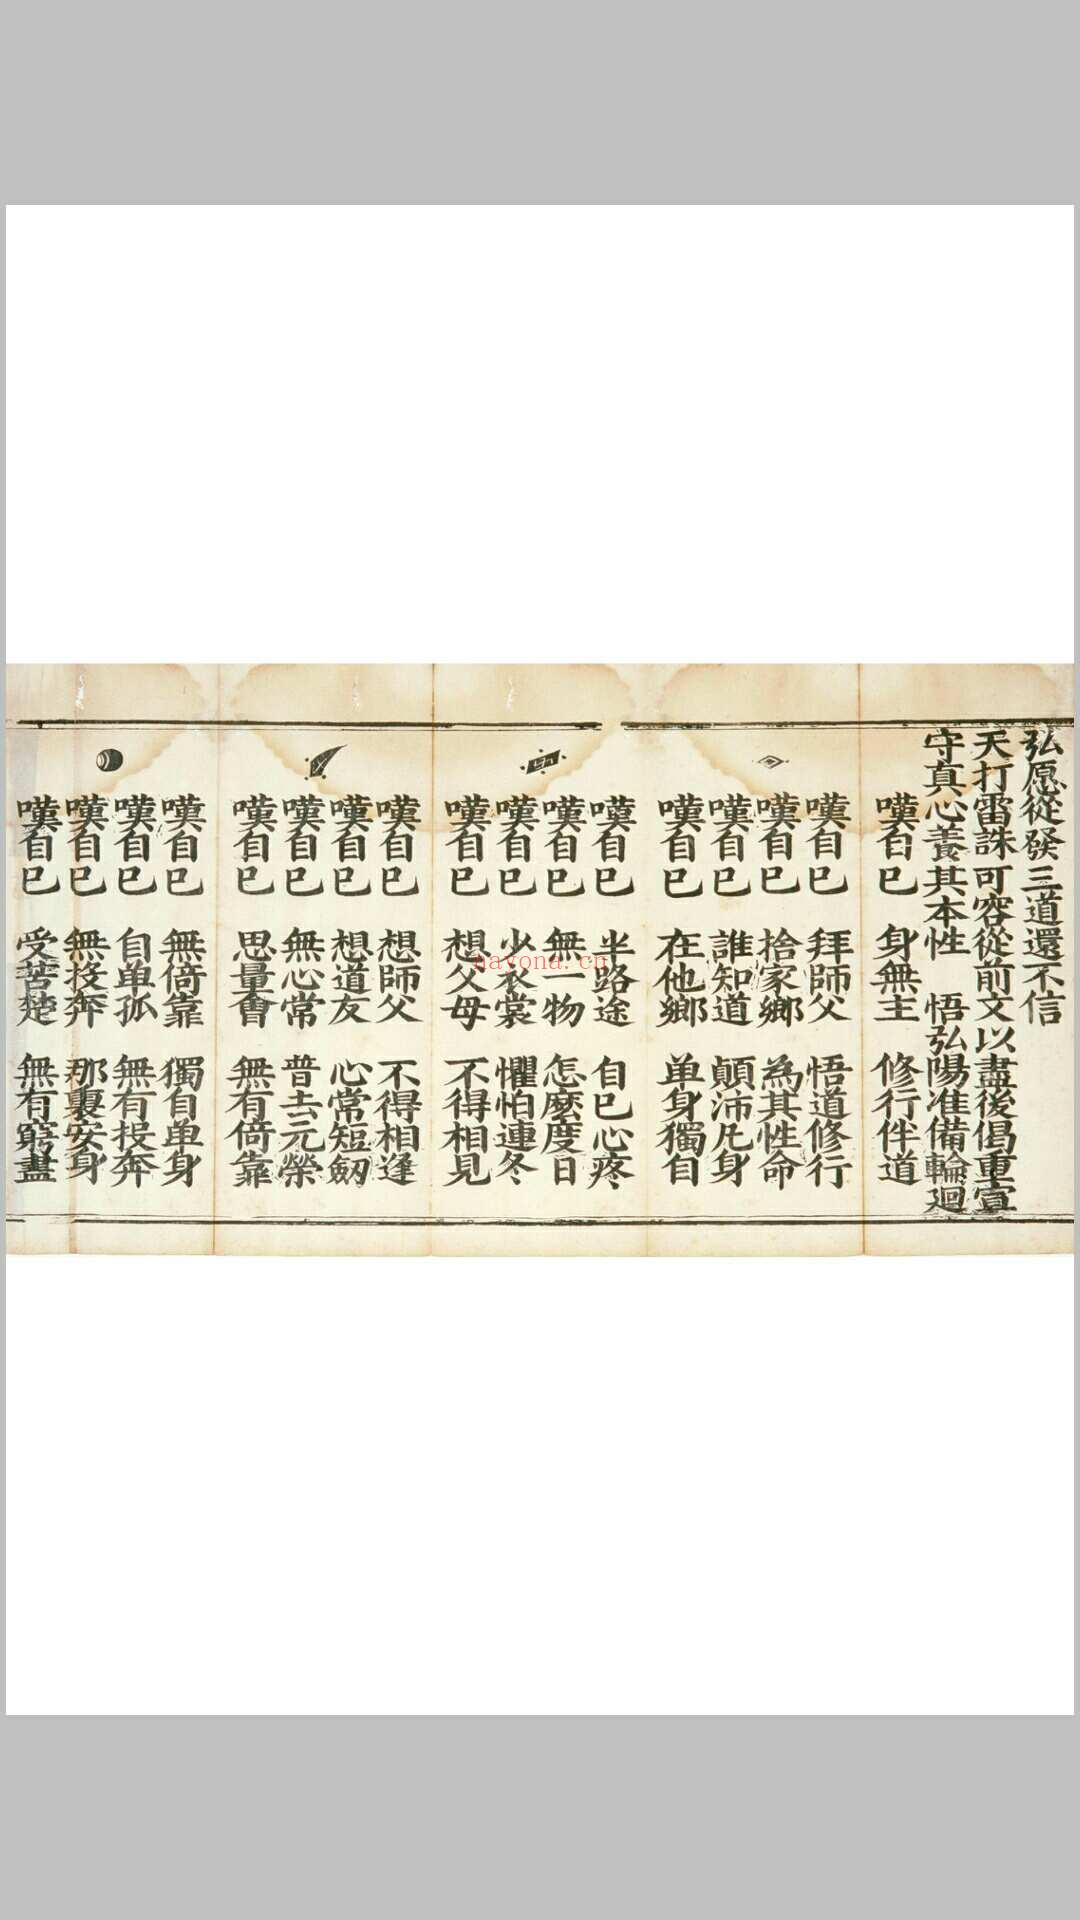 弘愿從發三道還不信
天打雷誅可容從前文以盡後偈重宣
守真心養其本性 悟弘陽准備輪廻
嘆自巳 身無主 修行伴道
嘆自巳 拜師父 悟道修行
嘆自巳 捨家鄉 為其性命
嘆自巳 誰知道 顛沛凡身
嘆自巳 在他鄉 单身獨自
嘆自巳 半路途 自巳心疼
嘆自巳 無一物 怎麼度日
嘆自巳 少衣裳 懼怕連冬
嘆自巳 想父母 不得相見
嘆自巳 想師父 不得相逢
嘆自巳 想道友 心常短劒
嘆自巳 無心常 普去元榮
嘆自巳 思量會 無有倚靠
嘆自巳 無倚靠 獨自单身
嘆自巳 自单孤 無有投奔
嘆自巳 無投奔 那裏安身
嘆自巳 受苦楚 無有窮盡
nayona.cn